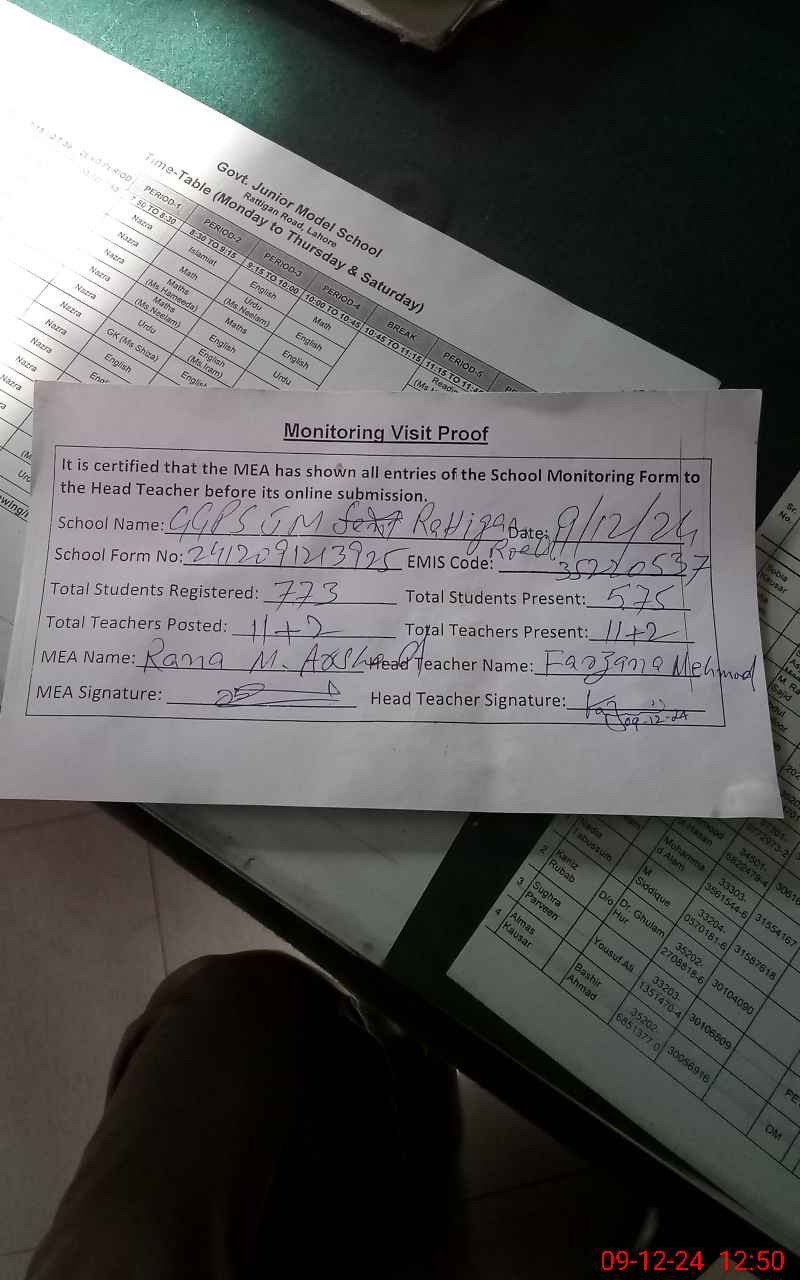 Govt. Junior Model School
Rattigan Road, Lahore
Time-Table (Monday to Thursday & Saturday)
PERIOD-1 PERIOD-2 PERIOD-3 PERIOD-4 BREAK PERIOD-5
7:50 TO 8:30 8:30 TO 9:15 9:15 TO 10:00 10:00 TO 10:45 10:45 TO 11:15 11:15 TO 11:45
Nazra Islamiat English Math
Nazra Math Urdu (Ms.Neelam) English
Nazra Maths (Ms.Hameeda) Maths English
Nazra Maths (Ms.Neelam) English Urdu
Nazra Urdu English (Ms.Iram)
Nazra GK (Ms Shiza) English
Nazra English
Nazra
Monitoring Visit Proof
It is certified that the MEA has shown all entries of the School Monitoring Form to
the Head Teacher before its online submission.
School Name: GGPS JM Rattigan Road Date: 9/12/24
School Form No: 2412091213925 EMIS Code: 35220537
Total Students Registered: 773 Total Students Present: 575
Total Teachers Posted: 11+2 Total Teachers Present: 11+2
MEA Name: Rana M. Arshad Head Teacher Name: Farzana Mehmod
MEA Signature: Head Teacher Signature:
09-12-24
Sr. No.
Sobia Kausar
1 Nadia Tabussum Muhammad Alam 33303-3561544-6 31554167
2 Kaniz Rubab M Siddique 33204-0570181-6 31587618
3 Sughra Parveen D/o Dr. Ghulam Hur 35202-2708818-6 30104090
4 Almas Kausar Yousuf Ali 33203-1351470-4 30106809
Bashir Ahmad 35202-6851377-0 30056916
DM
09-12-24 12:50